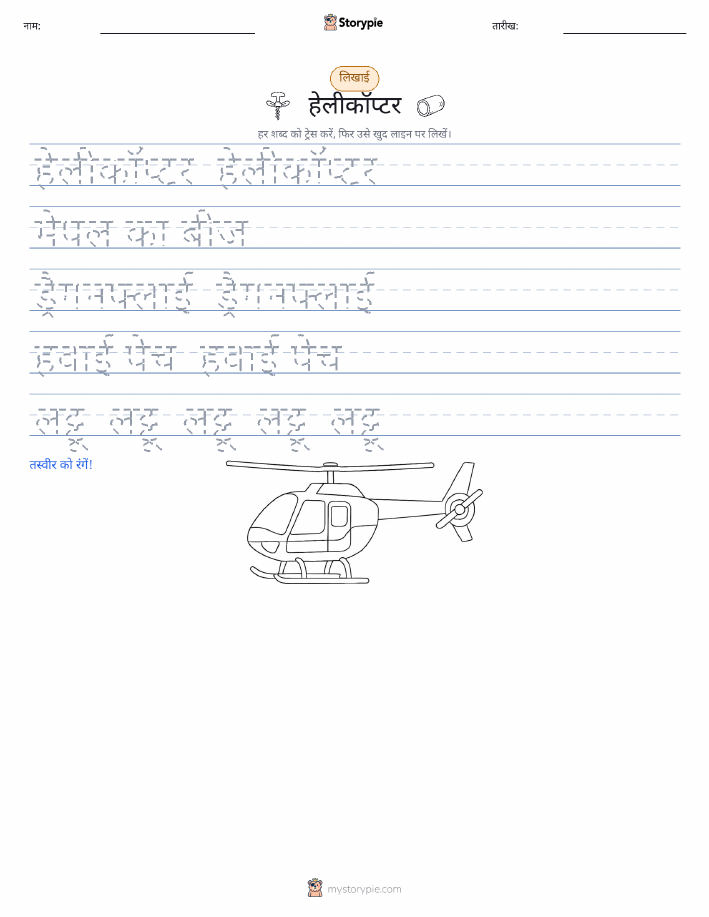 नाम:
Storypie
तारीख:
लिखाई
हेलीकॉप्टर
हर शब्द को ट्रेस करें, फिर उसे खुद लाइन पर लिखें।
हेलीकॉप्टर हेलीकॉप्टर
मेपल का बीज
ड्रैगनफ्लाई ड्रैगनफ्लाई
हवाई पेच हवाई पेच
लट्टू लट्टू लट्टू लट्टू लट्टू
तस्वीर को रंगें!
mystorypie.com